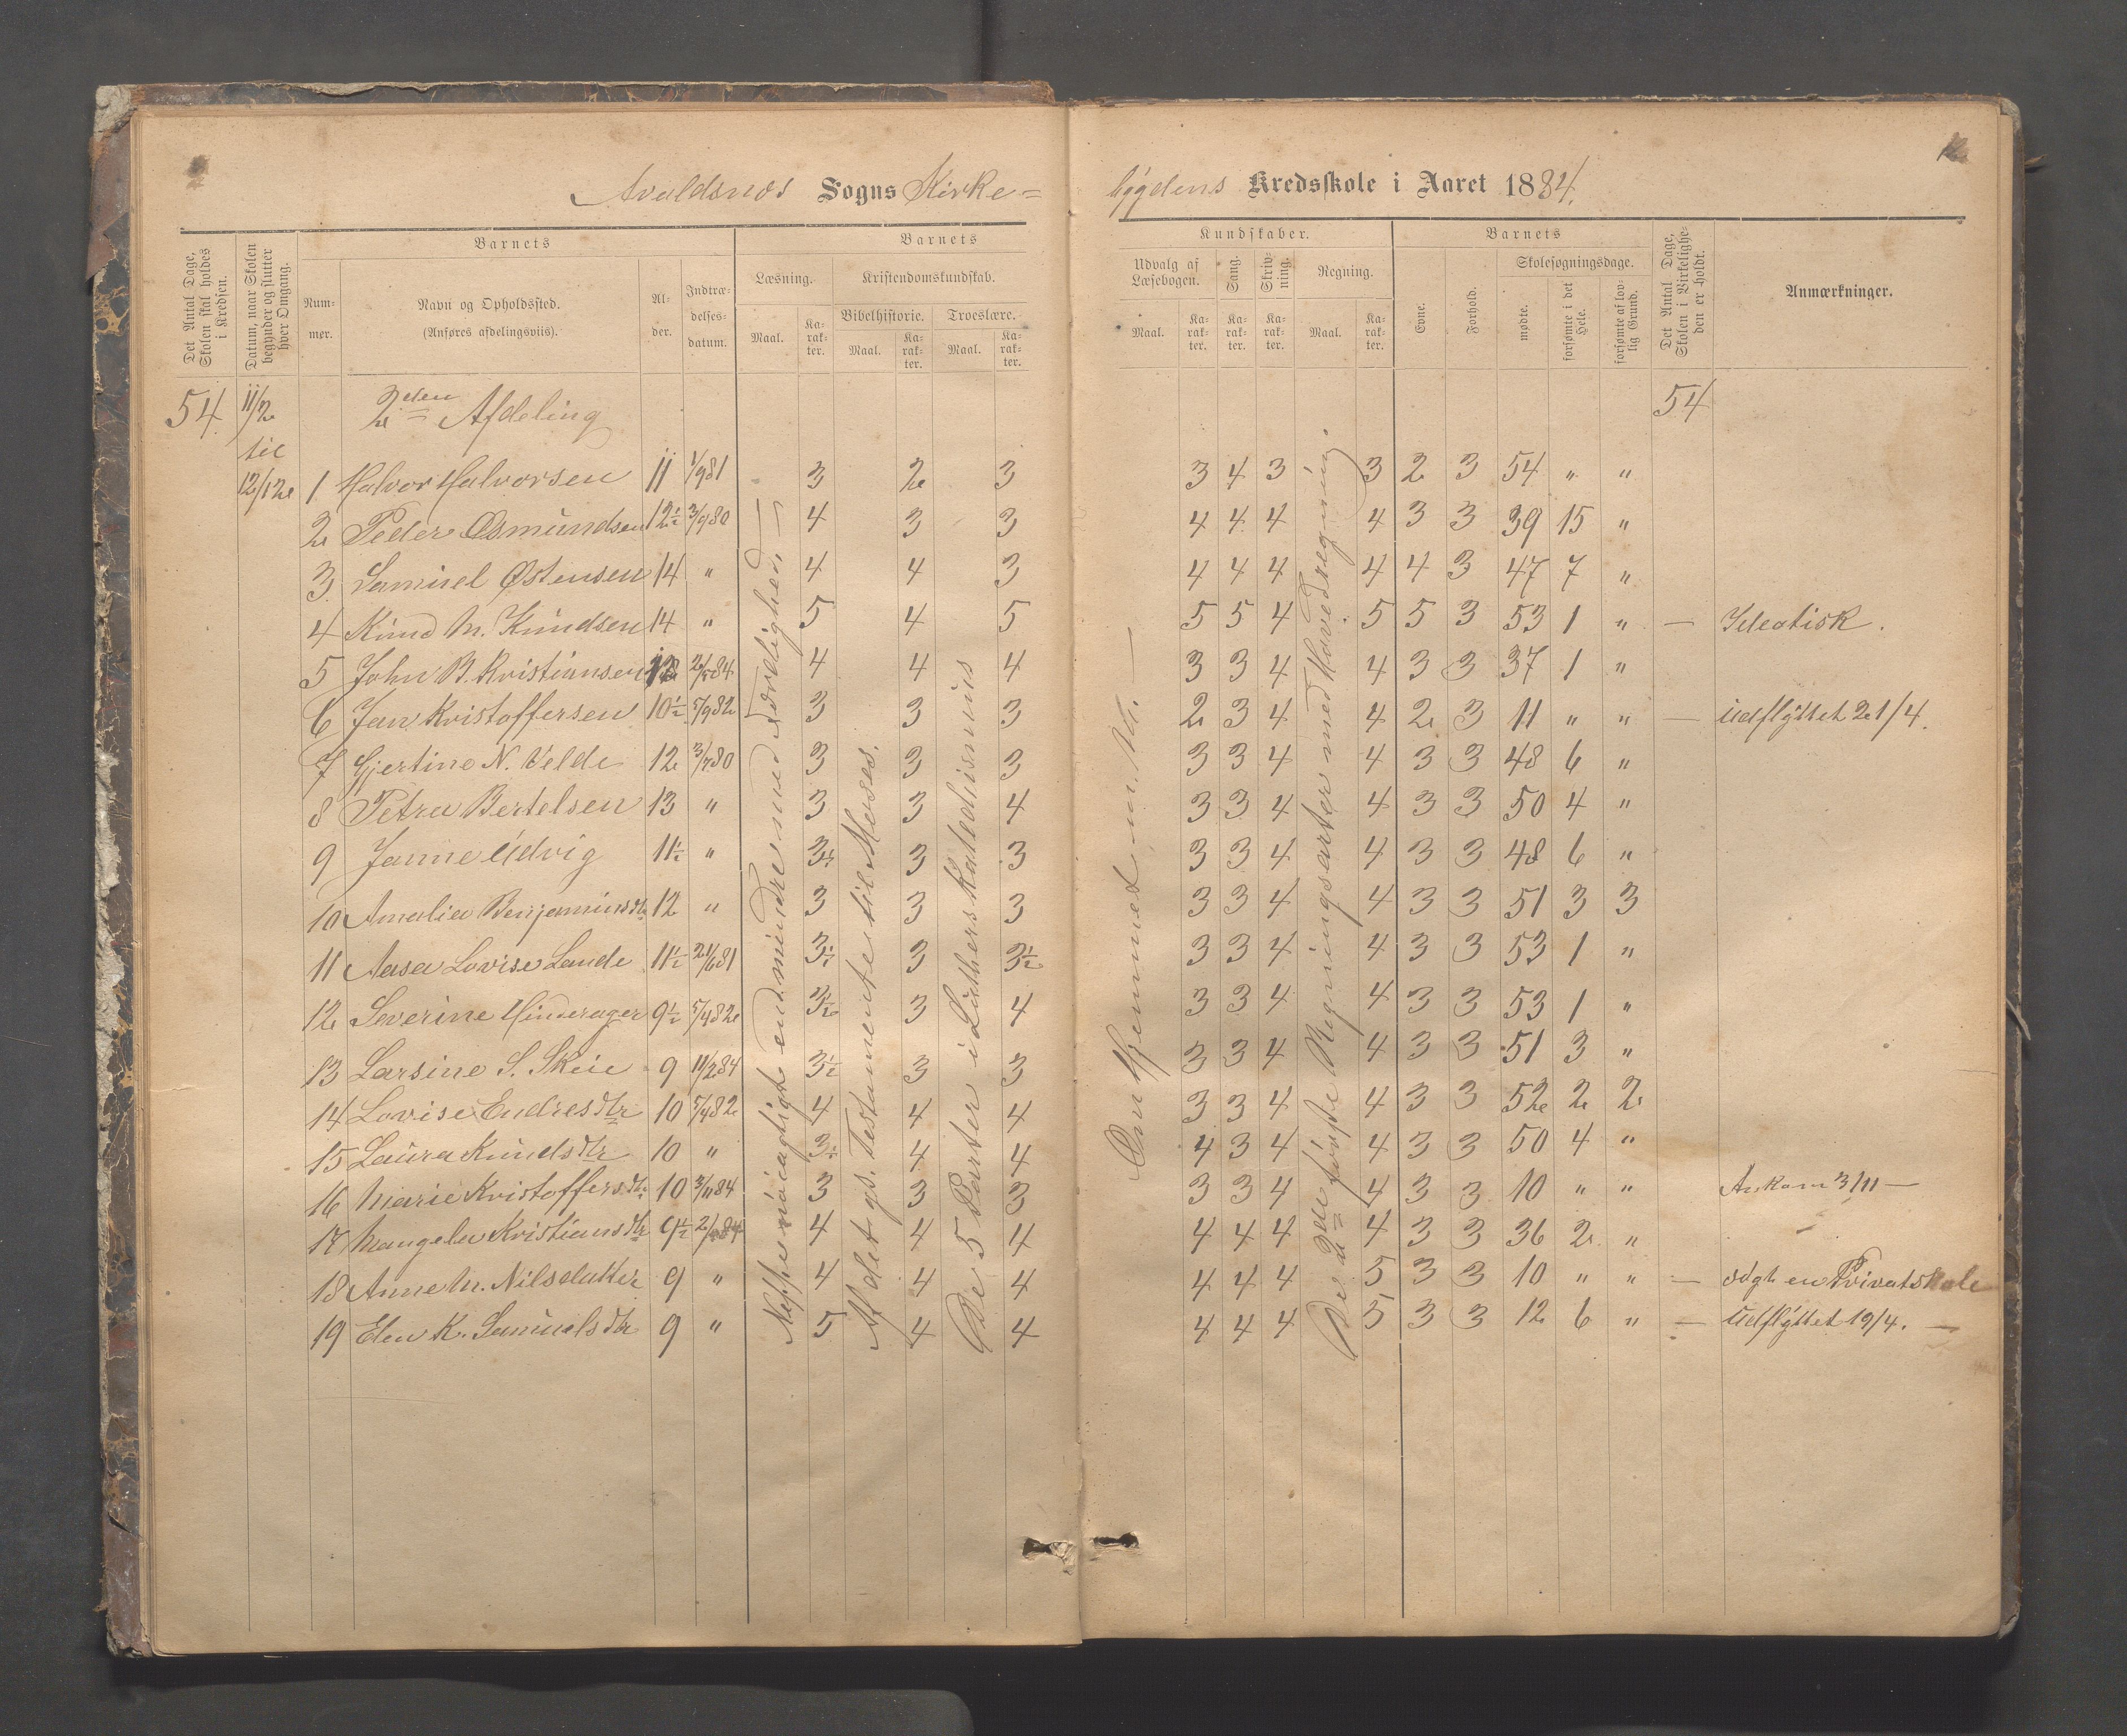 Avaldsnes Sogns Kirke=
bygdens Kredsskole i Aaret 1884.
Det Antal Dage, Skolen skal holdes i Kredsen.
Datum, naar Skolen begynder og slutter hver Omgang.
Barnets
Nummer.
Navn og Opholdssted.
(Anføres afdelingsviis).
Alder.
Indtrædelsesdatum.
Barnets
Læsning.
Kristendomskundskab.
Bibelhistorie.
Troeslære.
Maal.
Karakter.
Maal.
Karakter.
Maal.
Karakter.
Kundskaber.
Udvalg af Læsebogen.
Sang.
Skrivning.
Regning.
Maal.
Karakter.
Karakter.
Karakter.
Maal.
Karakter.
Barnets
Evne.
Forhold.
Skolesøgningsdage.
mødte.
forsømte i det Hele.
forsømte af lovlig Grund.
Det Antal Dage, Skolen i Virkeligheden er holdt.
Anmærkninger.
54 11/2 2den Afdeling 54
til
12/12 1 Halvor Halvorsen 11 1/9 81 3 2 3 3 4 3 3 2 3 54 " "
2 Peder Osmundsen 12½ 3/9 80 4 3 3 4 4 4 4 3 3 39 15 "
3 Samuel Østensen 14 " 4 4 3 4 4 4 4 4 3 47 7 "
4 Knud M. Knudsen 14 " 5 4 5 5 5 4 5 5 3 53 1 " — Ideotisk.
5 John B. Kristiansen 4 4 4 3 3 4 4 3 3 37 1 "
6 Jan Kristoffersen 10½ 5/9 82 3 3 3 2 3 4 4 2 3 11 " " — Udflyttet 21/4.
7 Gjertine N. Velde 12 3/7 80 3 3 3 3 3 4 4 3 3 48 6 "
8 Petra Bertelsen 13 " 3 3 4 3 3 4 4 3 3 50 4 "
9 Janne Udvig 11½ " 3½ 3 3 3 3 4 4 3 3 48 6 "
10 Amalia Benjaminsdtr 12 " 3 3 3 3 3 4 4 3 3 51 3 3
11 Aasa Lovise Lande 11½ 21/6 81 3½ 3 3½ 3 3 4 4 3 3 53 1 "
12 Severine Hinderager 9½ 5/4 82 3½ 3 4 3 3 4 4 3 3 53 1 "
13 Larsine S. Skeie 9 11/2 84 3½ 3 3 3 3 4 4 3 3 51 3 "
14 Lovise Endresdtr 10 5/4 82 4 4 4 3 3 4 4 3 3 52 2 2
15 Laura Knudsdtr 10 " 3½ 4 4 4 3 4 4 3 3 50 4 "
16 Marie Kristoffersdtr 10 3/11 84 3 3 3 3 3 4 4 3 3 10 " " Ankom 3/11 —
17 Mangela Kristiansdtr 9½ 4 4 4 4 4 4 4 3 3 36 2 "
18 Anne M. Nilsdatter 9 " 4 4 4 4 4 4 5 3 3 10 " " — søgt en Privatskole
19 Elen K. Samuelsdtr 9 " 5 4 4 4 4 4 5 3 3 12 6 " — Udflyttet 19/4. —
Neppe nöiagtigt end mindre med Færdighed —
Af det gl. Testamente til Moses.
De 5 Parter i Luthers Katedismus
Om Hjemmet m. M. —
De 2de første Regningsarter med Hovedregning.